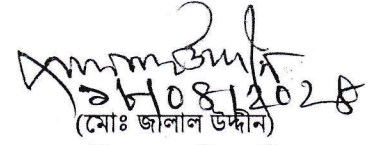 ১৮|০৪|২০২৪
(মোঃ জালাল উদ্দীন)